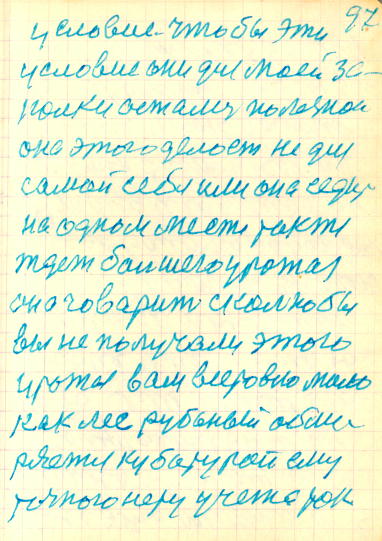 97
условие. чтобы эти
условие они для моей за-
полки астаму полезной
она этого делает не для
самой себя или она седит
на одном месте так ти
ждет большего урожая
она говарит сколко бы
вы не получали этого
урожая вам всеровно мало
как лес рубаный обме-
ряетя кубатурой ему
точного нету учета так